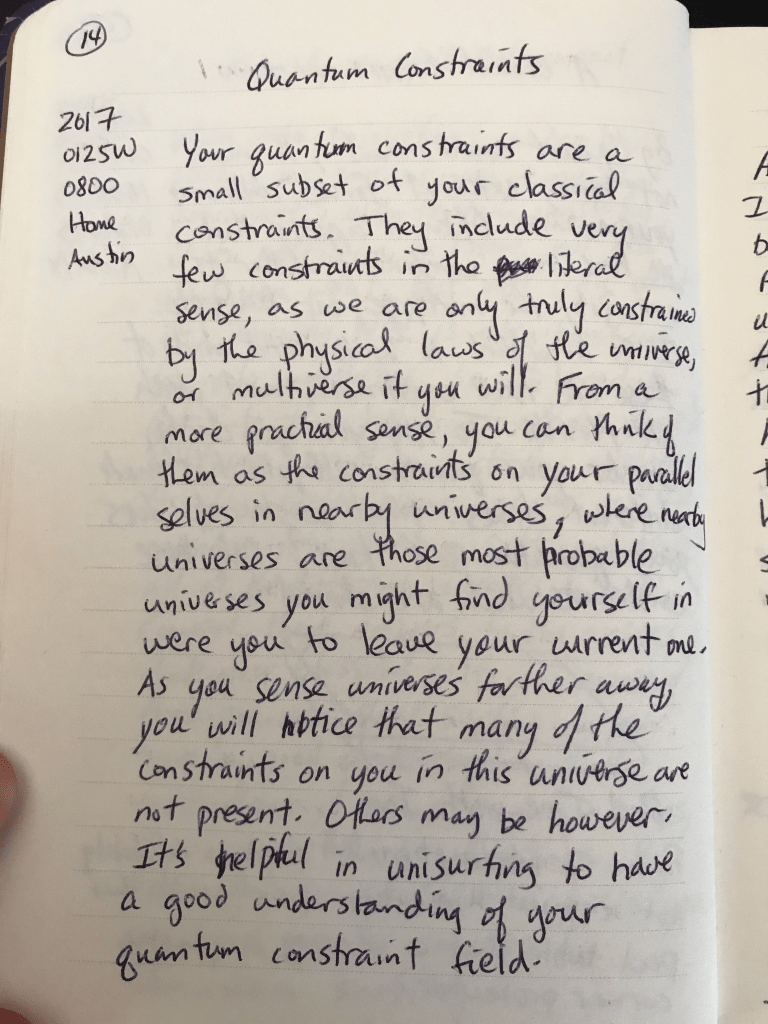 14
Quantum Constraints
2017
0125W
0800
Home
Austin
Your quantum constraints are a
small subset of your classical
constraints. They include very
few constraints in the literal
sense, as we are only truly constrained
by the physical laws of the universe,
or multiverse if you will. From a
more practical sense, you can think of
them as the constraints on your parallel
selves in nearby universes, where nearby
universes are those most probable
universes you might find yourself in
were you to leave your current one.
As you sense universes farther away,
you will notice that many of the
constraints on you in this universe are
not present. Others may be however.
It's helpful in unisurfing to have
a good understanding of your
quantum constraint field.